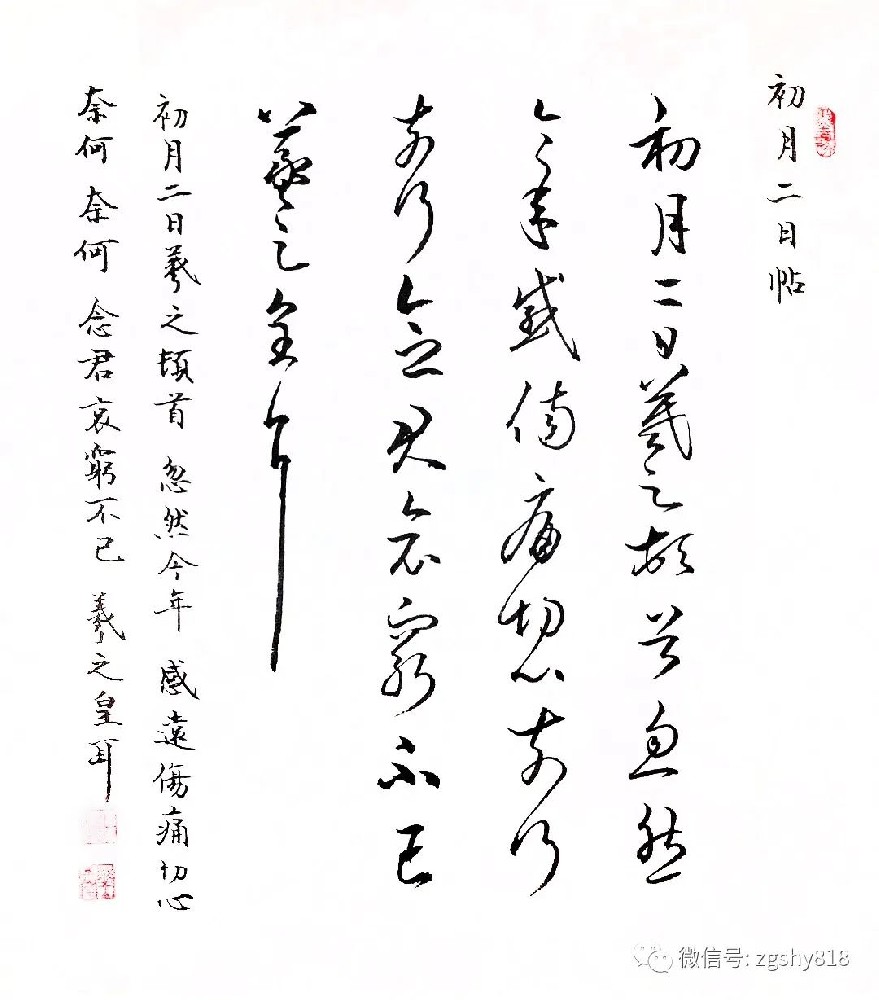 初月二日帖
初月二日羲之頓首忽然
今年感傷痛切心奈何
奈何念君哀窮不已
羲之皇耳
初月二日羲之頓首 忽然今年 感遠傷痛切心
奈何 奈何 念君哀窮不已 羲之皇耳
微信号: zgshy818